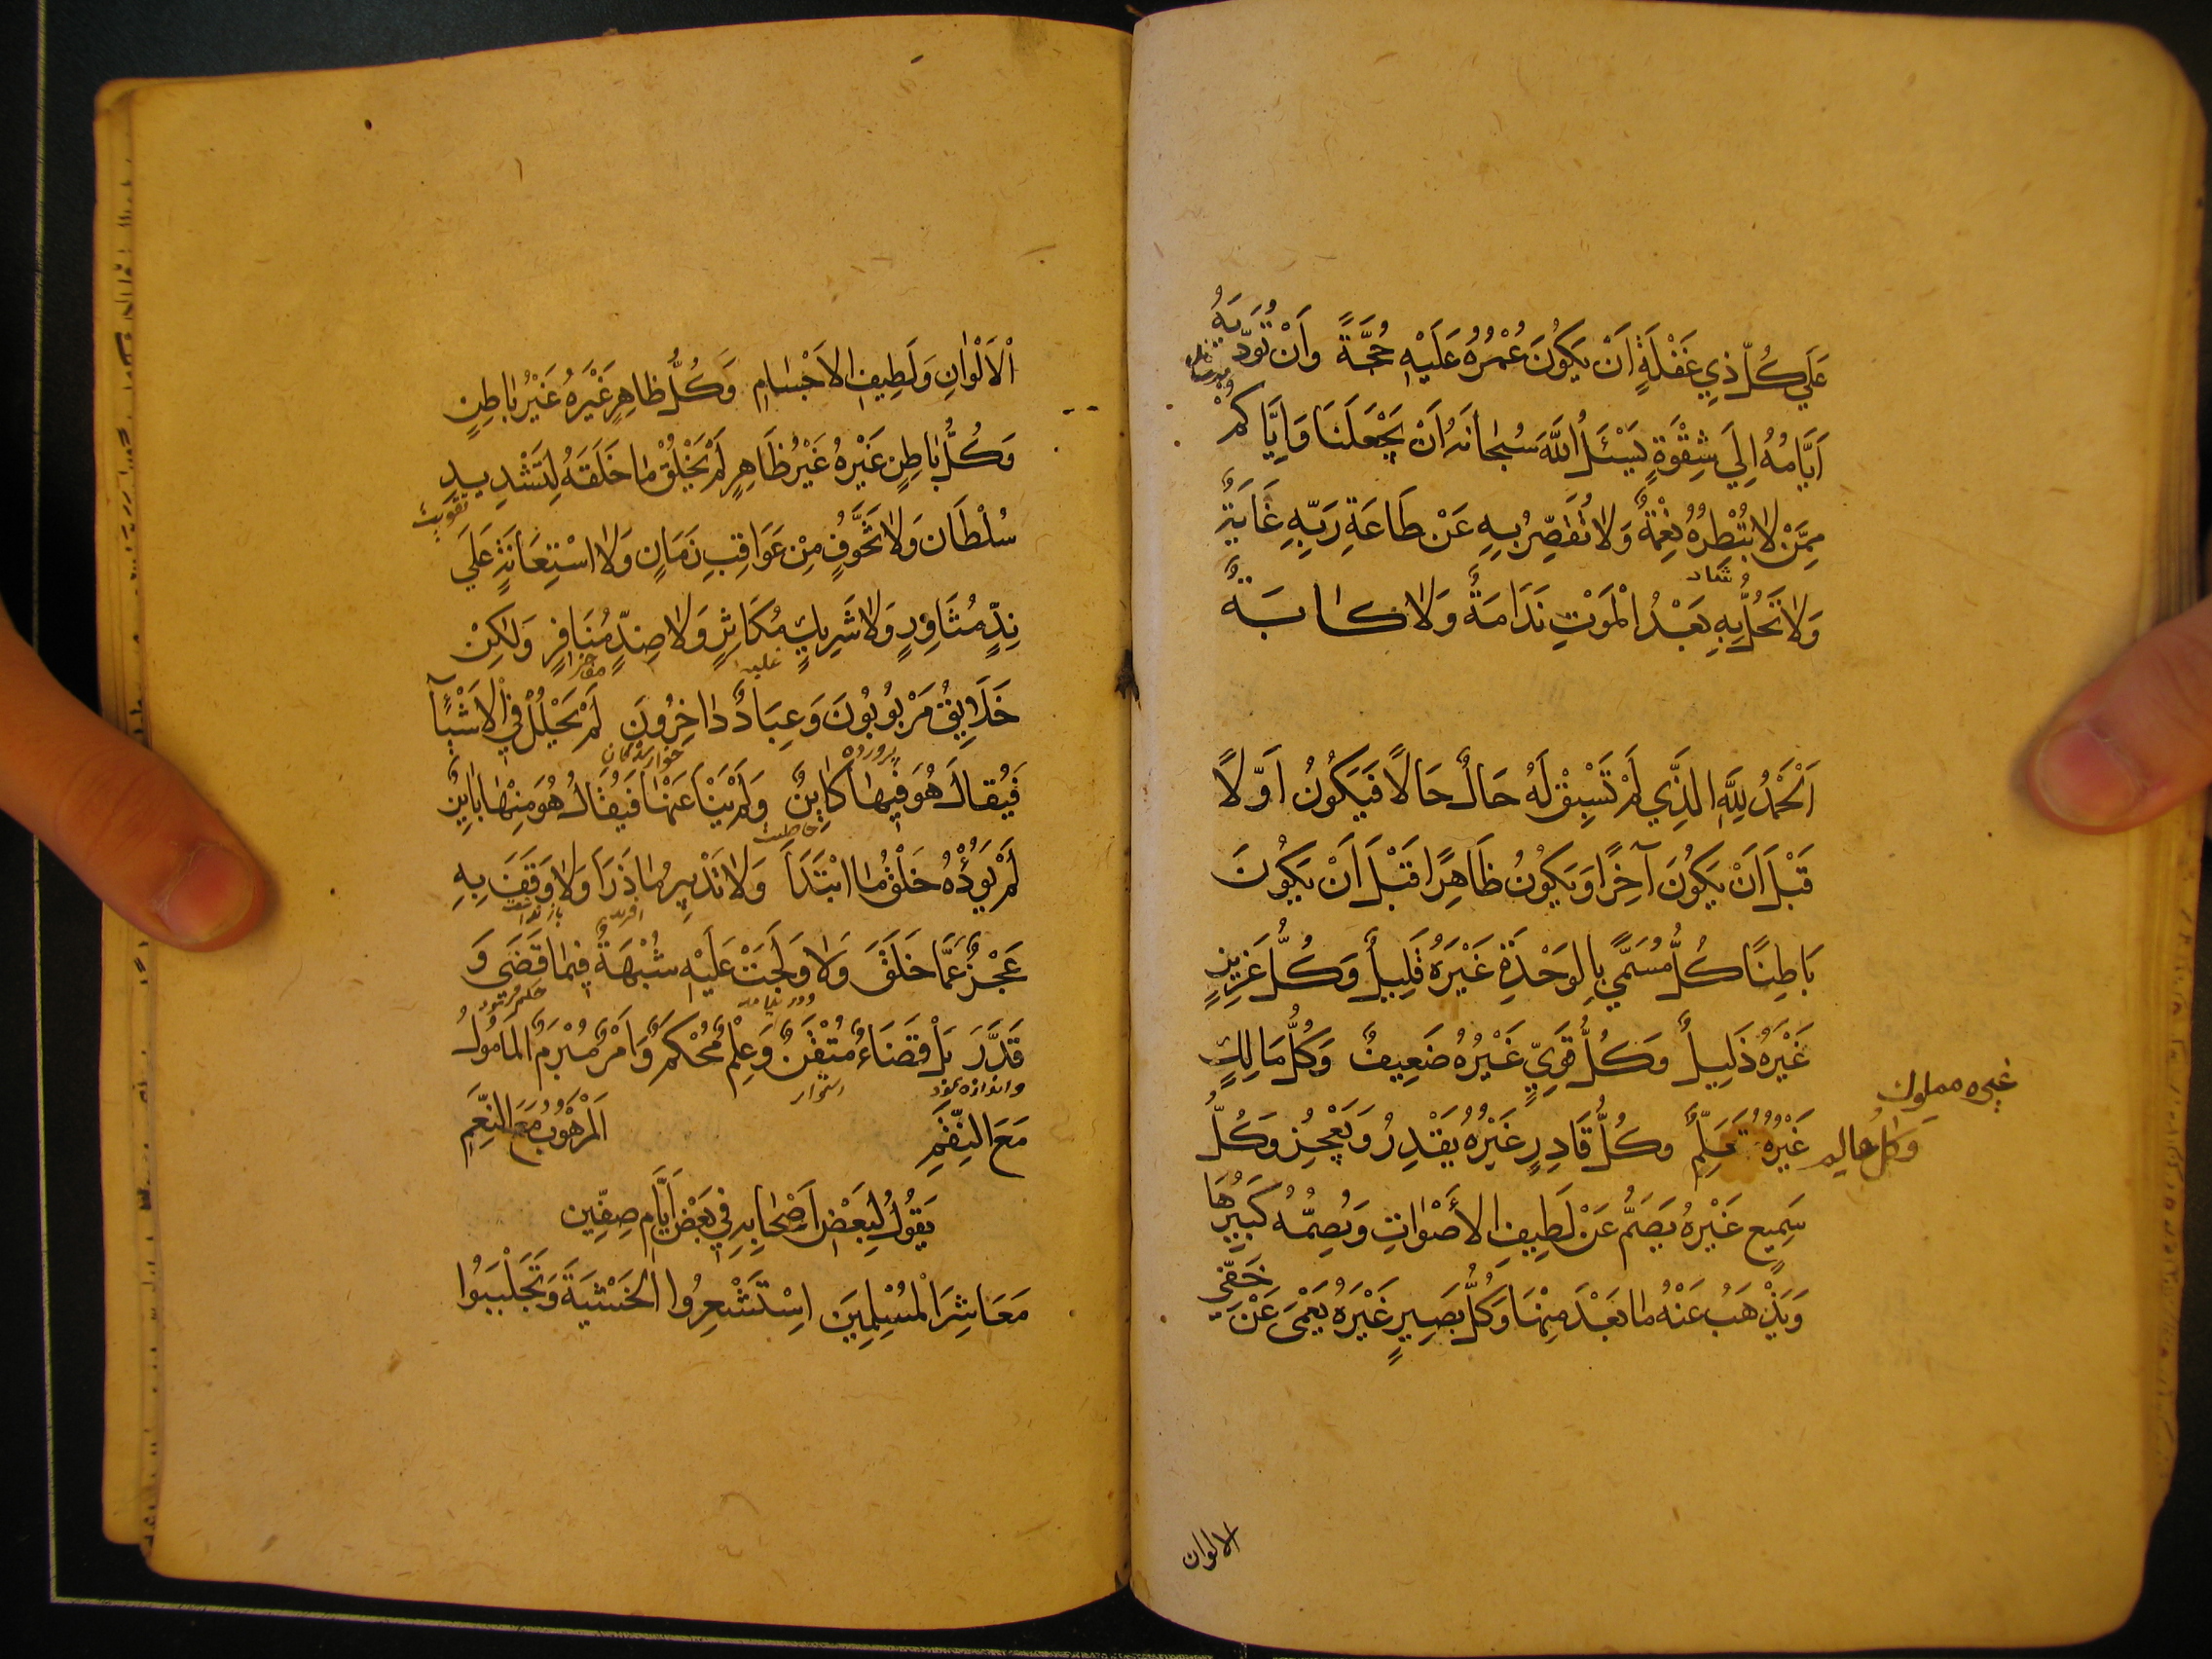 عَلَي كُلِّ ذِي غَفْلَةٍ اَنْ يَكُونَ عُمْرُهُ عَلَيْهِ حُجَّةً وَاَنْ تُؤَدِّيَهُ
اَيَّامُهُ اِلَي شِقْوَةٍ نَسْئَلُ اللَّهَ سُبْحَانَهُ اَنْ يَجْعَلَنَا وَاِيَّاكُمْ
مِمَّنْ لَا تُبْطِرُهُ نِعْمَةٌ وَلَا تُقَصِّرُ بِهِ عَنْ طَاعَةِ رَبِّهِ غَايَةٌ
وَلَا تَحُلُّ بِهِ بَعْدَ الْمَوْتِ نَدَامَةٌ وَلَا كَابَةٌ
اَلْحَمْدُ لِلَّهِ الَّذِي لَمْ تَسْبِقْ لَهُ حَالٌ حَالًا فَيَكُونُ اَوَّلًا
قَبْلَ اَنْ يَكُونَ آخِرًا وَيَكُونُ ظَاهِرًا قَبْلَ اَنْ يَكُونَ
بَاطِنًا كُلُّ مُسَمًّي بِالوَحْدَةِ غَيْرَهُ قَلِيلٌ وَكُلُّ عَزِيزٍ
غَيْرَهُ ذَلِيلٌ وَكُلُّ قَوِيٍّ غَيْرُهُ ضَعِيفٌ وَكُلُّ مَالِكٍ
غيره مملوك
وكل عالم غَيْرُهُ مُتَعَلِّمٌ وَكُلُّ قَادِرٍ غَيْرُهُ يَقْدِرُ وَيَعْجِزُ وَكُلُّ
سَمِيعٍ غَيْرُهُ يَصَمُّ عَنْ لَطِيفِ الأَصْوَاتِ وَيُصِمُّهُ كَبِيرُهَا
وَيَذْهَبُ عَنْهُ مَا بَعُدَ مِنْهَا وَكُلُّ بَصِيرٍ غَيْرَهُ يَعْمَى عَنْ خَفِيِّ
الالوان
اْلاَلْوَانِ وَلَطِيفِ الاَجْسَامِ وَكُلُّ ظَاهِرٍ غَيْرَهُ غَيْرُ بَاطِنٍ
وَكُلُّ بَاطِنٍ غَيْرُهُ غَيْرُ ظَاهِرٍ لَمْ يَخْلُقْ مَا خَلَقَهُ لِتَشْدِيدِ
تقويت
سُلْطَان وَلَا تَخَوُّفٍ مِنْ عَوَاقِبِ زَمَانٍ وَلَا اسْتِعَانَةٍ عَلَي
نِدٍّ مُثَاوِرٍ وَلَا شَرِيكٍ مُكَاثِرٍ وَلَا ضِدٍّ مُنَافِرٍ وَلَكِنْ
خَلَايِقُ مَرْبُوبُونَ وَعِبَادٌ دَاخِرُونَ لَمْ يَحْلُلْ فِي الْاَشْيَآ
پرورده
فَيُقَالَ هُوَ فِيهَا كَايِنٌ وَلَمْ يَنْأَ عَنْهَا فَيُقَالُ هُوَ مِنْهَا بَايِنٌ
لَمْ يَؤُدْهُ خَلْقُ مَا ابْتَدَأَ وَلَا تَدْبِيرُ مَا ذَرَأَ وَلَا وَقَفَ بِهِ
عَجْزٌ عَمَّا خَلَقَ وَلَا وَلَجَتْ عَلَيْهِ شُبْهَةٌ فِيمَا قَضَى وَ
قَدَّرَ بَلْ قَضَاءٌ مُتْقَنٌ وَعِلْمٌ مُحْكَمٌ وَاَمْرٌ مُبْرَمٌ المَأمُولُ
استوار
مَعَ النِّقَمِ اَلْمَرْهُوبُ مَعَ النِّعَمِ
يَقُولُ لِبَعْضِ اَصْحَابِهِ فِي بَعْضِ اَيَّامِ صِفِّين
مَعَاشِرَ الْمُسْلِمِيَن اسْتَشْعِرُوا الْخَشْيَةَ وَتَجَلْبَبُوا